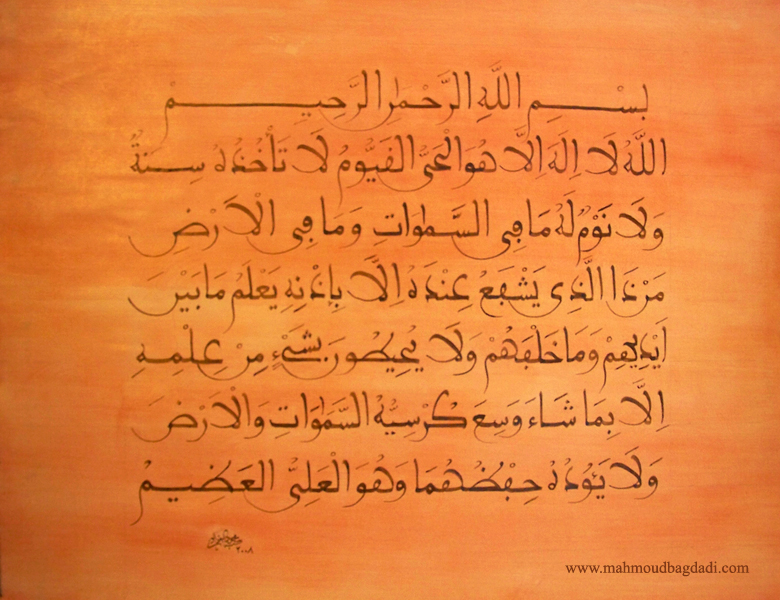 بِسْمِ اللَّهِ الرَّحْمٰنِ الرَّحِيمِ
اللَّهُ لَا إِلَهَ إِلَّا هُوَ الْحَيُّ الْقَيُّومُ لَا تَأْخُذُهُ سِنَةٌ
وَلَا نَوْمٌ لَهُ مَا فِي السَّمٰوَاتِ وَمَا فِي الْأَرْضِ
مَنْ ذَا الَّذِي يَشْفَعُ عِنْدَهُ إِلَّا بِإِذْنِهِ يَعْلَمُ مَا بَيْنَ
أَيْدِيهِمْ وَمَا خَلْفَهُمْ وَلَا يُحِيطُونَ بِشَيْءٍ مِنْ عِلْمِهِ
إِلَّا بِمَا شَاءَ وَسِعَ كُرْسِيُّهُ السَّمٰوَاتِ وَالْأَرْضَ
وَلَا يَؤُدُهُ حِفْظُهُمَا وَهُوَ الْعَلِيُّ الْعَظِيمُ
٢٠٠٨
www.mahmoudbagdadi.com